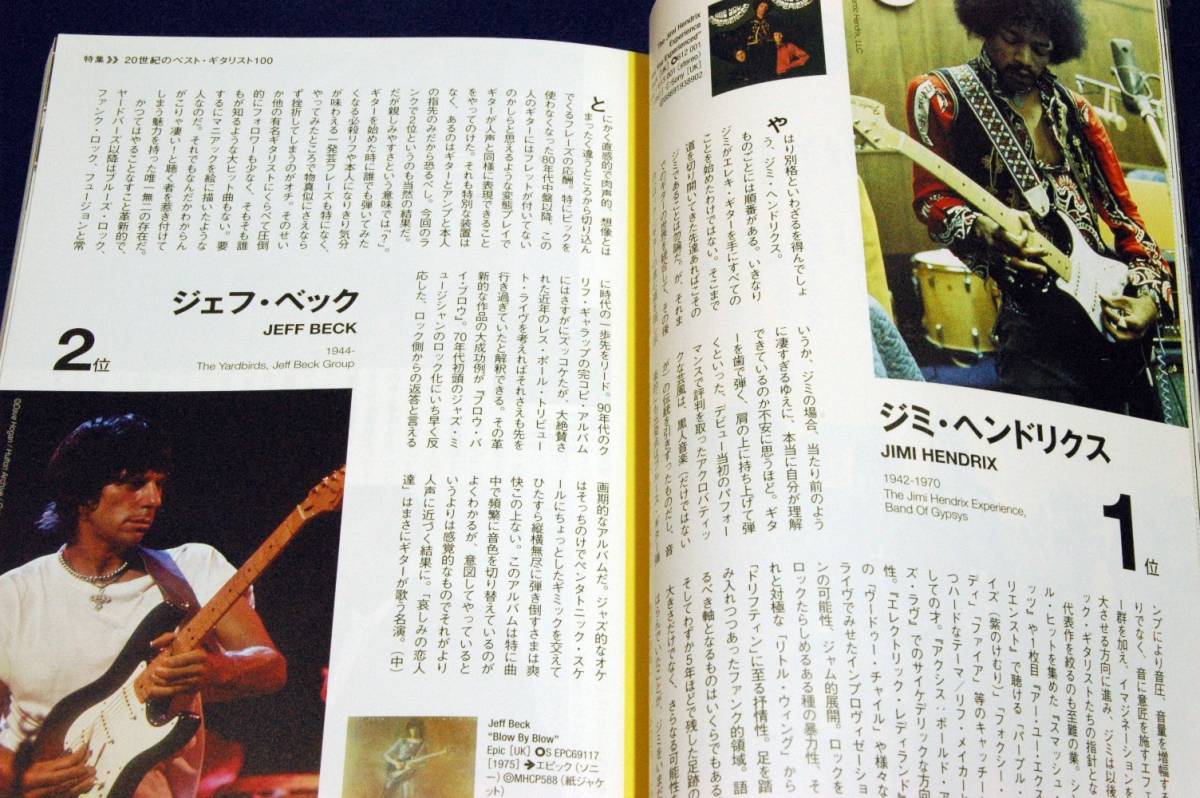 特集 》》 20世紀のベスト・ギタリスト100
とにかく直感的で肉声的、想像とは
まったく違うところから切り込ん
でくるフレーズの応酬。特にピックを
使わなくなった80年代中盤以降、この
人のギターにはフレットが付いてない
のかしらと思えるような変態プレイで
ギターが人声と同様に表現できること
をやってのけた。それも特別な装置は
なく、あるのはギターとアンプと本人
の指先のみだから畏るべし。今回のラ
ンクで2位というのも当然の結果だ。
だが親しみやすさという意味では“？”。
ギターを始めた時に誰でも弾いてみた
くなる必殺リフや本人になりきり気分
が味わえる一発芸フレーズも特になく、
やってみたところで物真似にさえなら
ず挫折してしまうのがオチ。そのせい
か他の有名ギタリストにくらべて圧倒
的にフォロワーも少なく、そもそも誰
もが知るような大ヒット曲もない。要
するにマニアックを絵に描いたような
人なのだ。それでもなんだかわからん
がこりゃ凄い！と聴く者を惹き付けて
しまう魅力を持った唯一無二の存在だ。
かつてはやることなすこと革新的で、
ヤードバーズ以降はブルース・ロック、
ファンク・ロック、フュージョンと常
に時代の一歩先をリード。90年代のク
リフ・ギャラップの完コピ・アルバム
にはさすがにズッコケたが、大絶賛さ
れた近年のレス・ポール・トリビュー
ト・ライヴを考えればそれさえも先を
行き過ぎていたと解釈できる。その革
新的な作品の大成功例が『ブロウ・バ
イ・ブロウ』。70年代初頭のジャズ・ミ
ュージシャンのロック化にいち早く反
応した、ロック側からの返答と言える
画期的なアルバムだ。ジャズ的なオケ
はそっちのけでペンタトニック・スケ
ールにちょっとしたギミックを交えて
ひたすら縦横無尽に弾き倒すさまは爽
快この上ない。このアルバムは特に曲
中で頻繁に音色を切り替えているのが
よくわかるが、意図してやっていると
いうよりは感覚的なものでそれがより
人声に近づく結果に。「哀しみの恋人
達」はまさにギターが歌う名演。（中）
ジェフ・ベック
JEFF BECK
2位
1944-
The Yardbirds, Jeff Beck Group
Jeff Beck
"Blow By Blow"
Epic [UK] S EPC69117
[1975] ➔エピック（ソニ
ー）◎MHCP588（紙ジャ
ケット）
The Jimi Hendrix
Experience
やはり別格といわざるを得んでしょ
う、ジミ・ヘンドリクス。
ものごとには順番がある。いきなり
ジミがエレキ・ギターを手にすべての
ことを始めたわけではない。そこまで
道を切り開いてきた先達あればこその
ジミであることは勿論だ。が、それま
でのギターの世界を統合して、その後
いうか、ジミの場合、当たり前のよう
に凄すぎるゆえに、本当に自分が理解
できているのか不安に思うほど。ギタ
ーを歯で弾く、肩の上に持ち上げて弾
くといった、デビュー当初のパフォー
マンスで評判を取ったアクロバティッ
クな芸風は、黒人音楽（だけではない
が）の伝統を引きずったものだし、音
ジミ・ヘンドリクス
JIMI HENDRIX
1942-1970
The Jimi Hendrix Experience,
Band Of Gypsys
1位
ンプにより音圧、音量を増幅する
りでなく、音に意匠を施すエフェ
ー群を加え、イマジネーションを
大させる方向に進み、ジミは以後
ック・ギタリストたちの指針とな
代表作を絞るのも至難の業。シ
ル・ヒットを集めた『スマッシュ・
ッツ』や一枚目『アー・ユー・エクス
リエンスト』で聴ける「パープル・
イズ（紫のけむり）」「フォクシー・
ディ」「ファイア」等のキャッチー
つハードなテーマ／リフ・メイカー
しての才。『アクシス：ボールド・
ズ・ラヴ』でのサイケデリックな方向
性。『エレクトリック・レディランド』
の「ヴードゥー・チャイル」や様々な
ライヴでみせたインプロヴィゼーショ
ンの可能性、ジャム的展開。ロックを
ロックたらしめるある種の暴力性、そ
れと対極な「リトル・ウィング」から
「ドリフティン」に至る抒情性。足を踏
み入れつつあったファンク的領域。語
るべき軸となるものはいくらでもある。
そしてわずか5年ほどで残した足跡の
大きさだけでなく、さらなる可能性を